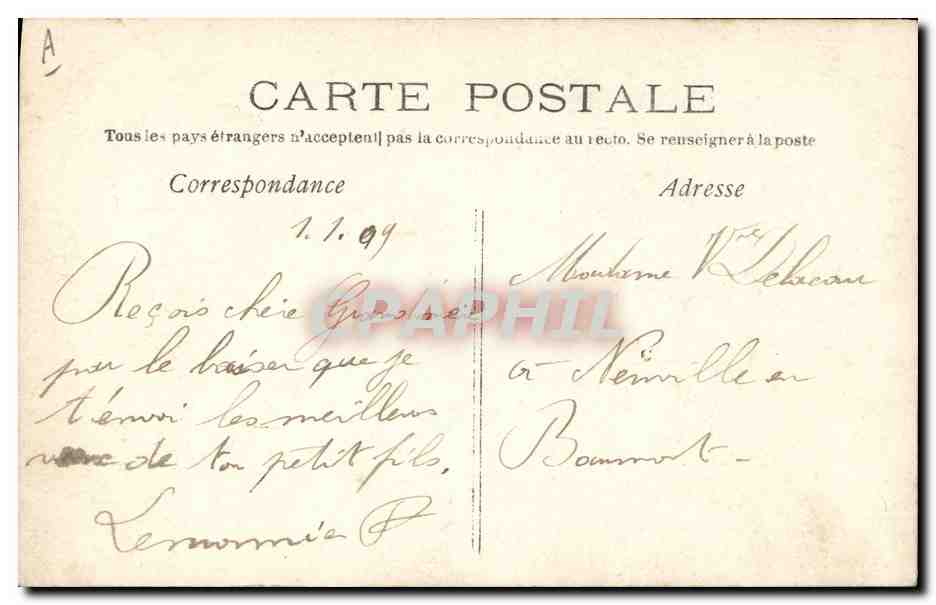 A
CARTE POSTALE
Tous les pays étrangers n'acceptent pas la correspondance au recto. Se renseigner à la poste
Correspondance
Adresse
1.1.09
Reçois chère Grand'mère
par le baiser que je
t'envoi les meilleurs
de ton petit fils.
Madame Vve
à Neuville en
Beaumont
CPAPHIL